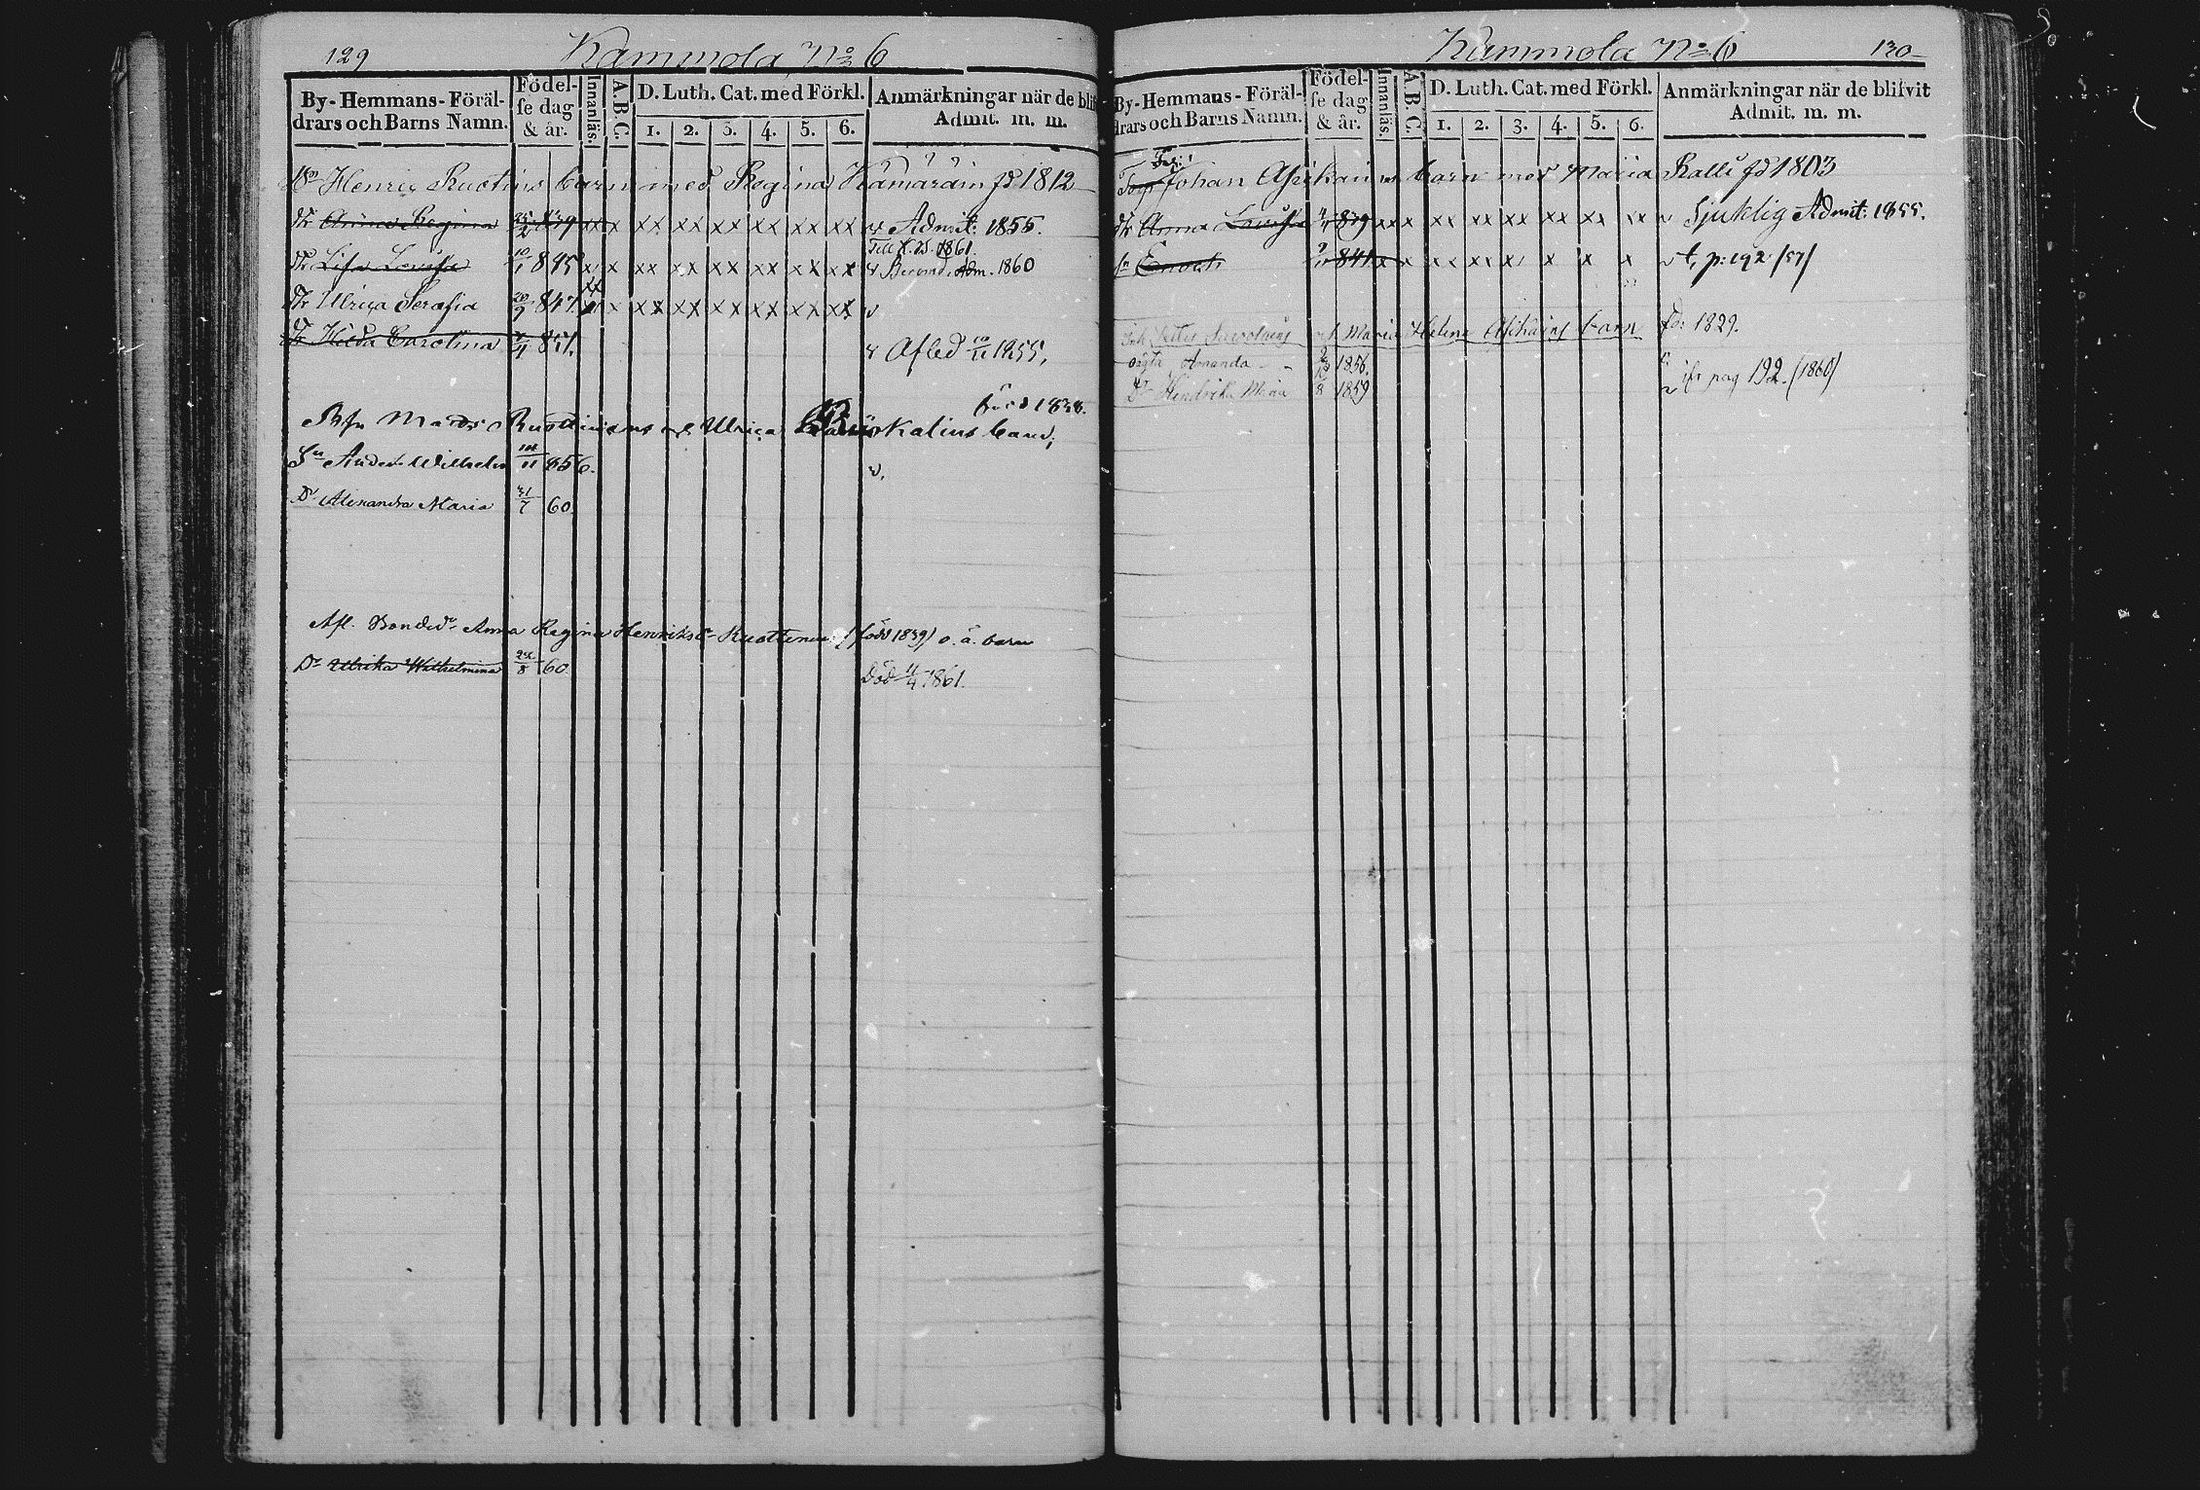 129
Kammola No 6
By-Hemmans-Föräl-
drars och Barns Namn.
Födel-
se dag
& år.
Innanläs.
A.B.C.
D. Luth. Cat. med Förkl.
1. 2. 3. 4. 5. 6.
Anmärkningar när de blif
Admit. m. m.
Henric Ruotins barn med Regina Hämäräin fd 1812
dr Anna Regina 25/2 839 xx x xx xx xx xx xx xx Admit: 1855.
Till 1861
dr Lisa Lovisa 10/1 845 x x xx xx xx xx xx xx Adm. 1860
dr Ulrica Serafia 20/9 847 xx x xx xx xx xx xx xx
dr Hilda Carolina 851. Afled 10/11 1855,
född 1838.
Mads Ruottinens Ulrica Kalius barn;
Sn Anders Wilhelm 856.
Dr Alexandra Maria 31/7 60.
Afl. Bondedr Anna Regina Henriksdr Ruottinen (född 1839) o. ä. barn
Dr Ulrika Wilhelmina 24/8 60. Död 11/4 1861.
Kammola No 6
130
By-Hemmans-Föräl-
drars och Barns Namn.
Födel-
se dag
& år.
Innanläs.
A.B.C.
D. Luth. Cat. med Förkl.
1. 2. 3. 4. 5. 6.
Anmärkningar när de blifvit
Admit. m. m.
Johan Asikain barn med Maria Ralli fd 1803
dr Anna Lovisa 839 xx x xx xx xx xx xx xx Sjuklig Admit: 1855.
sn Enoch 841 x x xx xx x x x x p: 192 /57/
Petter Savolains Maria Helena Asikains barn fd: 1829.
oägta Amanda 1856.
Dr Hendrika Maria 8 1859 pag 192. (1860)